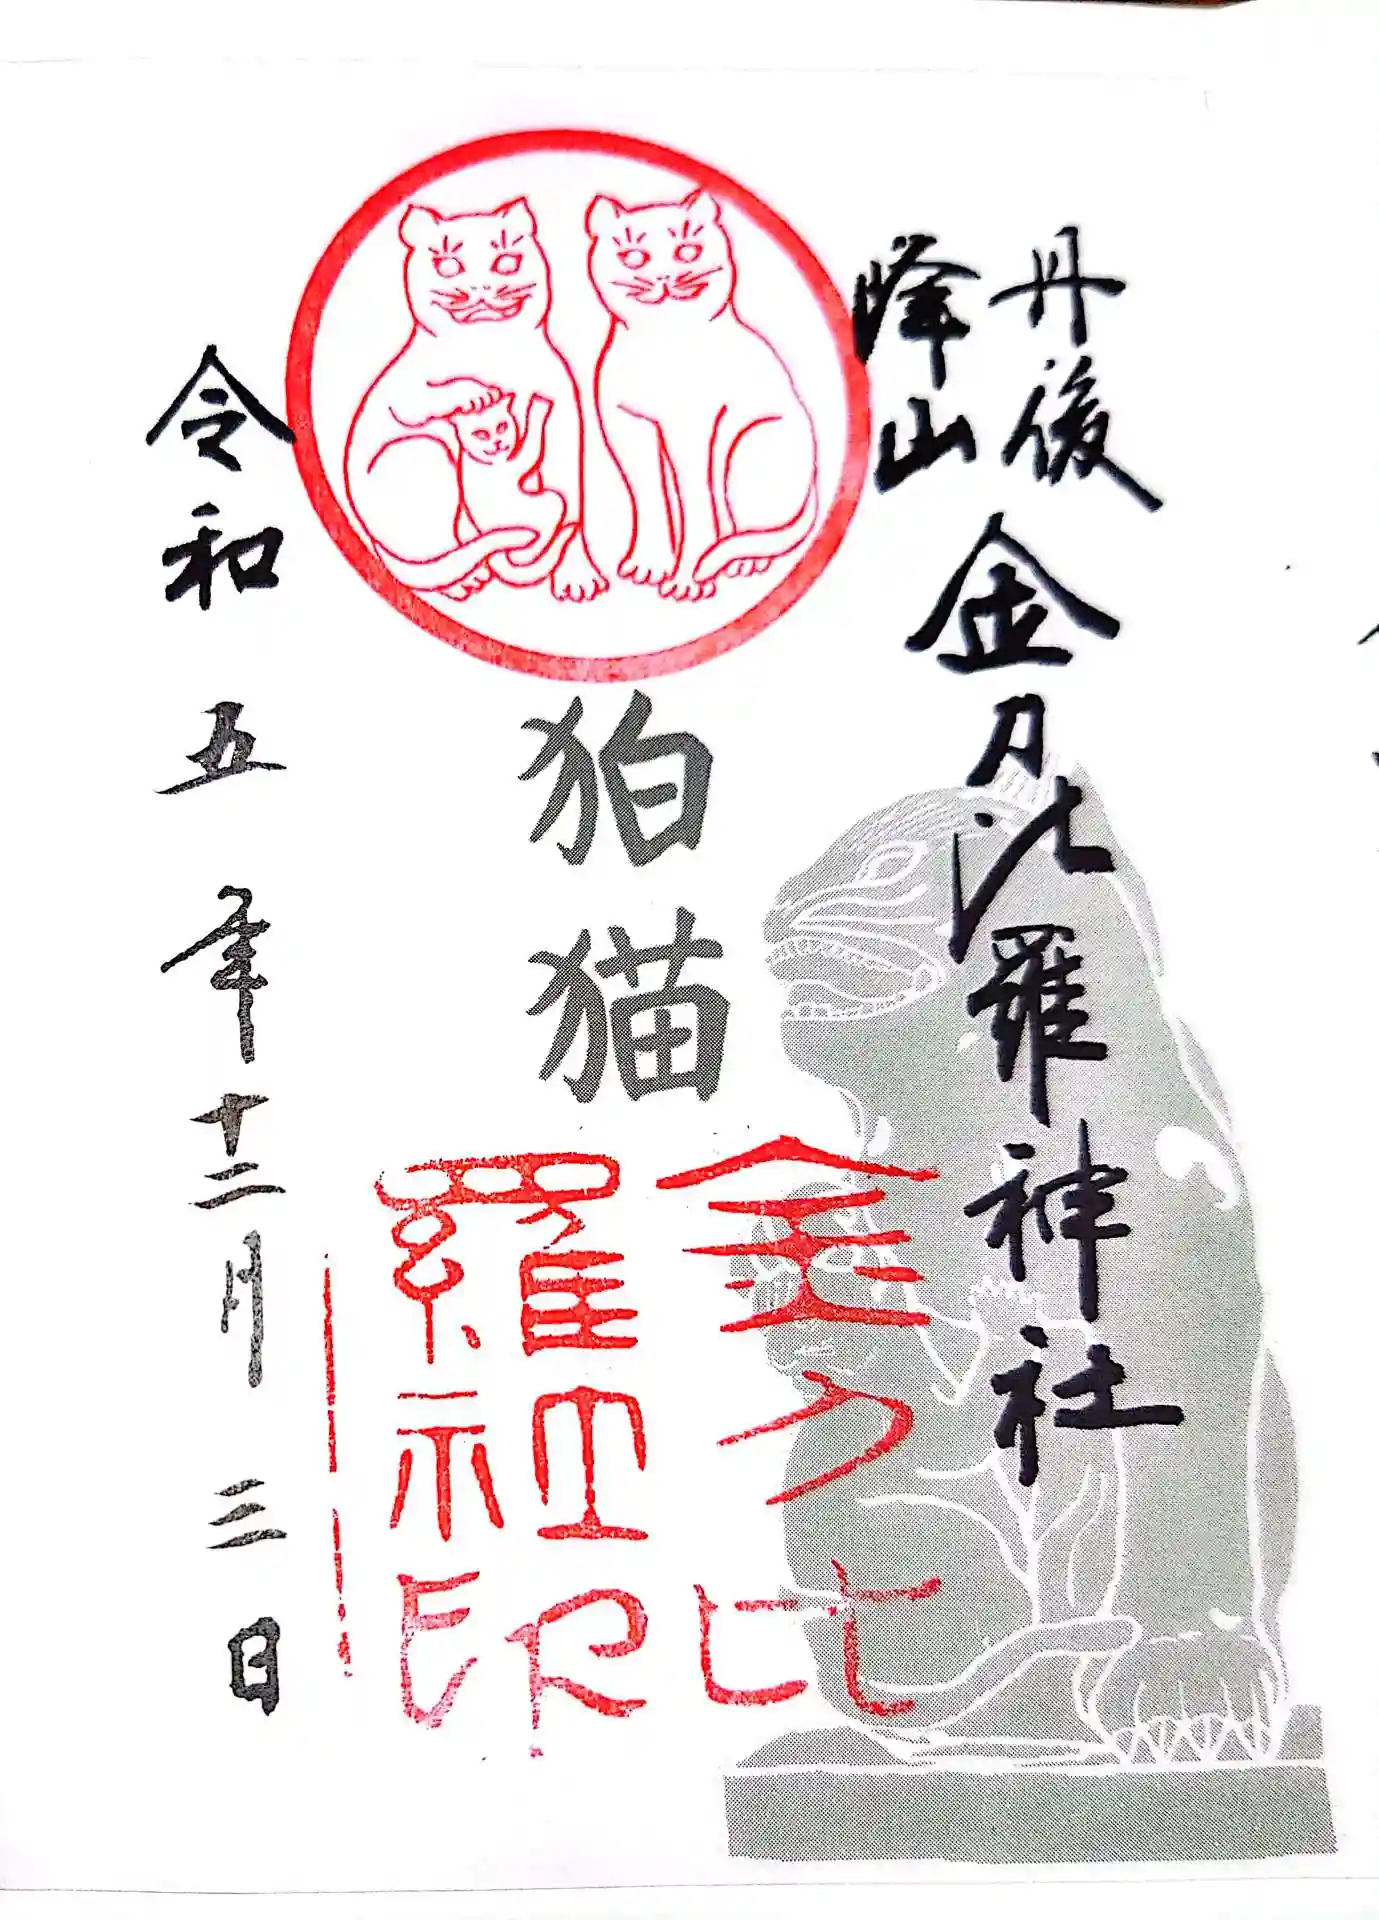 丹後
峰山
金刀比羅神社
狛猫
金刀比
羅神
社印
令和五年十二月三日